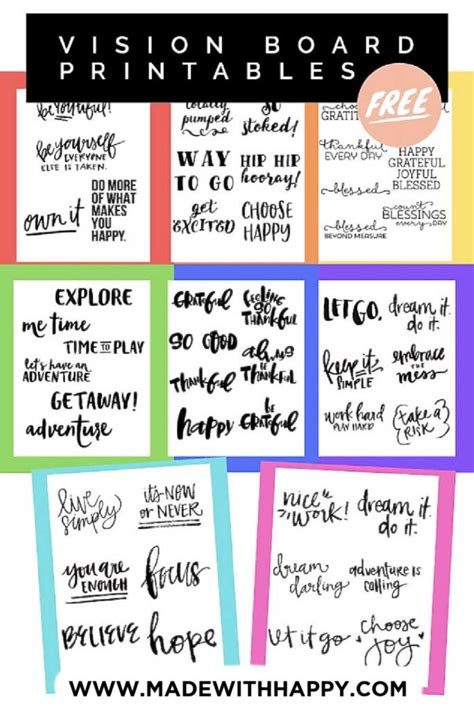 VISION BOARD
PRINTABLES
FREE
be youtiful!
be yourself
EVERYONE
ELSE IS TAKEN.
own it
DO MORE
OF WHAT
MAKES
YOU
HAPPY.
totally
pumped
SO
stoked!
WAY
TO GO
HIP HIP
hooray!
get
EXCITED
CHOOSE
HAPPY
choose
GRATIT
thankful
EVERY DAY
HAPPY
GRATEFUL
JOYFUL
BLESSED
blessed
count
BLESSINGS
every DAY
blessed
BEYOND MEASURE
EXPLORE
me time
TIME TO PLAY
let's have an
ADVENTURE
GETAWAY!
adventure
GRATEFUL
FEELING
SO
THANKFUL
SO GOOD
always
BE
THANKFUL
THANKFUL
happy
BE
GRATEFUL
LET GO.
dream it.
do it.
keep it
SIMPLE
embrace
THE
mess
work hard
PLAY HARD
{take a}
RISK
live
simply
it's NOW
or NEVER
you are
ENOUGH
focus
BELIEVE
hope
nice
work!
dream it.
do it.
dream
darling
adventure is
calling
let it go
choose
JOY
WWW.MADEWITHHAPPY.COM